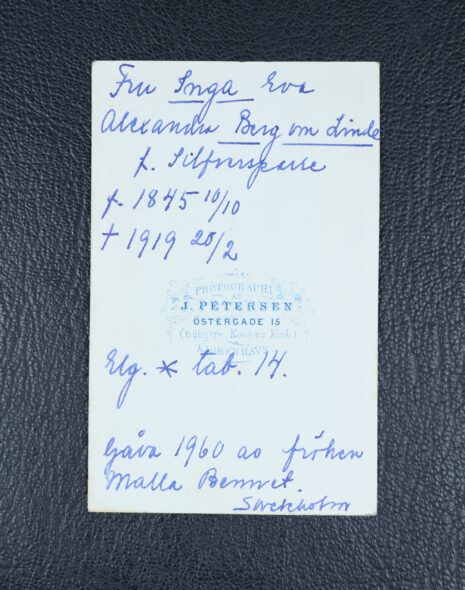 Fru Inga Eva
Alexandra Berg von Linde
f. Silfversparre
f. 1845 10/10
† 1919 20/2
PHOTOGRAPHI
AF
J. PETERSEN
ÖSTERGADE 15
(tidligere Kongens Klub)
KJØBENHAVN
Elg. * tab. 14.
Gåva 1960 av fröken
Malla Bennet.
Stockholm